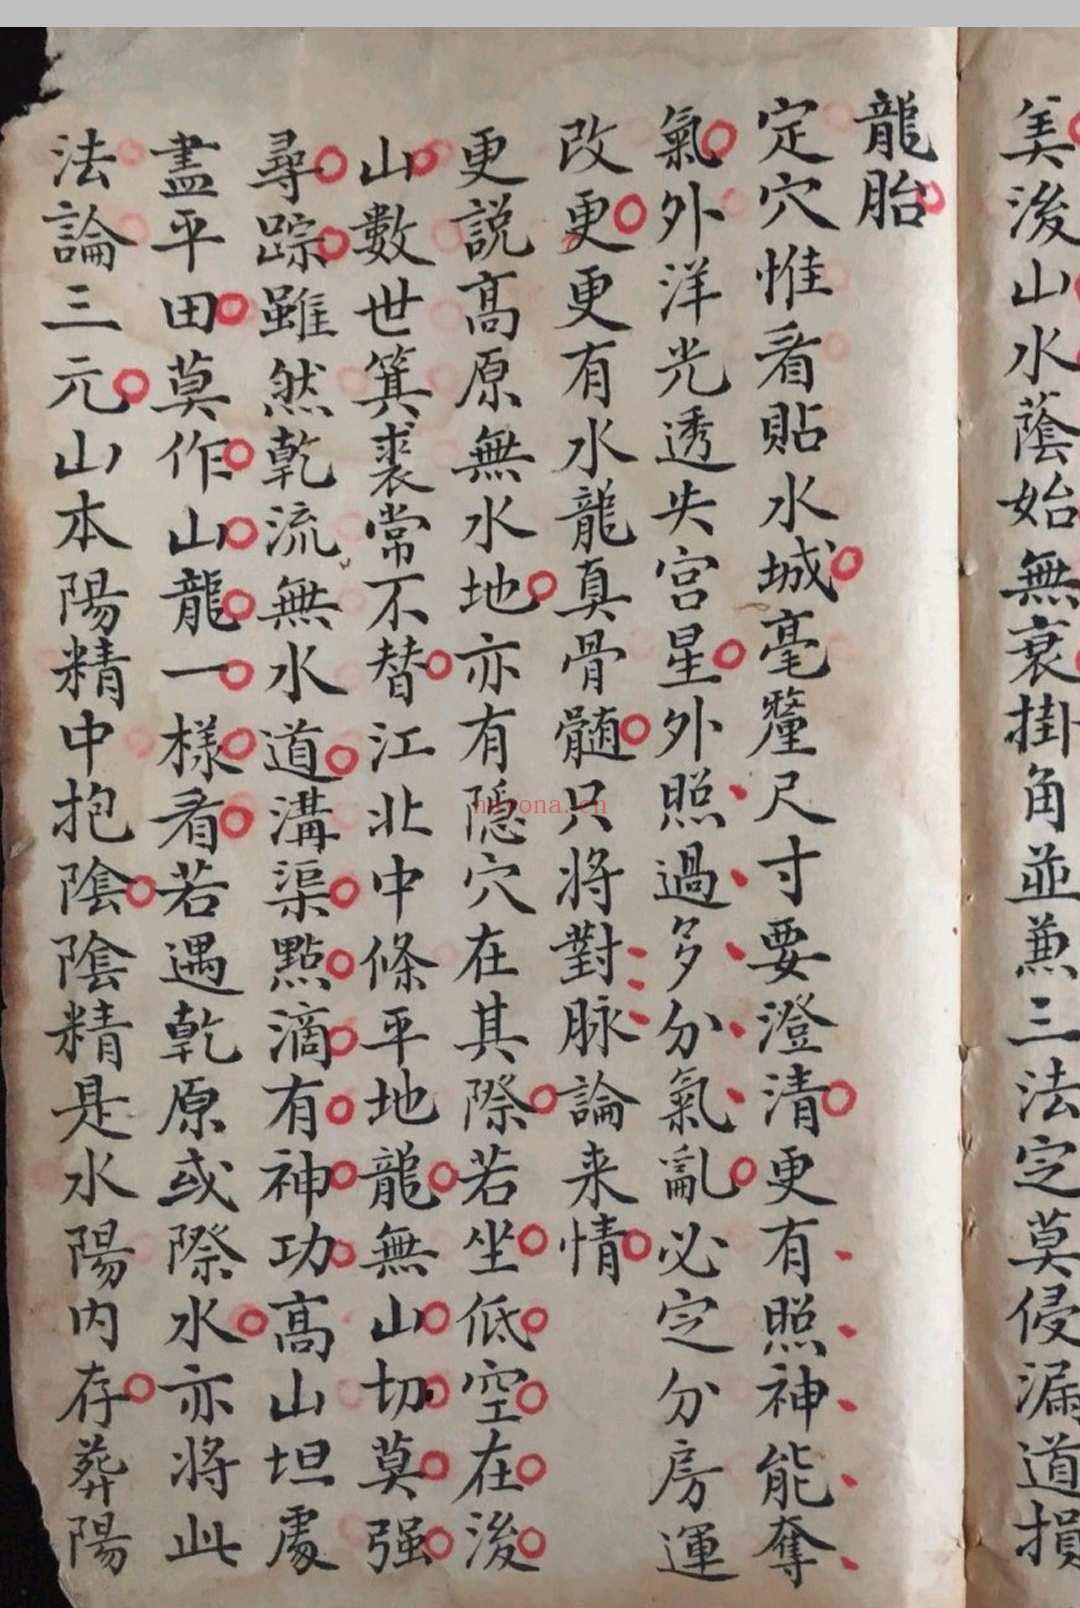 美後山水蔭始無衰掛角並兼三法定莫侵漏道損
龍胎
定穴惟看貼水城毫釐尺寸要澄清更有照神能奪
氣外洋光透失宮星外照過多分氣亂必定分房運
改更更有水龍真骨髓只將對脉論来情
更説髙原無水地亦有隱穴在其際若坐低空在後
山數世箕裘常不替江北中條平地龍無山切莫强
尋踪雖然乾流無水道溝渠點滴有神功髙山坦處
盡平田莫作山龍一樣看若遇乾原或際水亦將此
法論三元山本陽精中抱陰陰精是水陽内存葬陽
nayona.cn